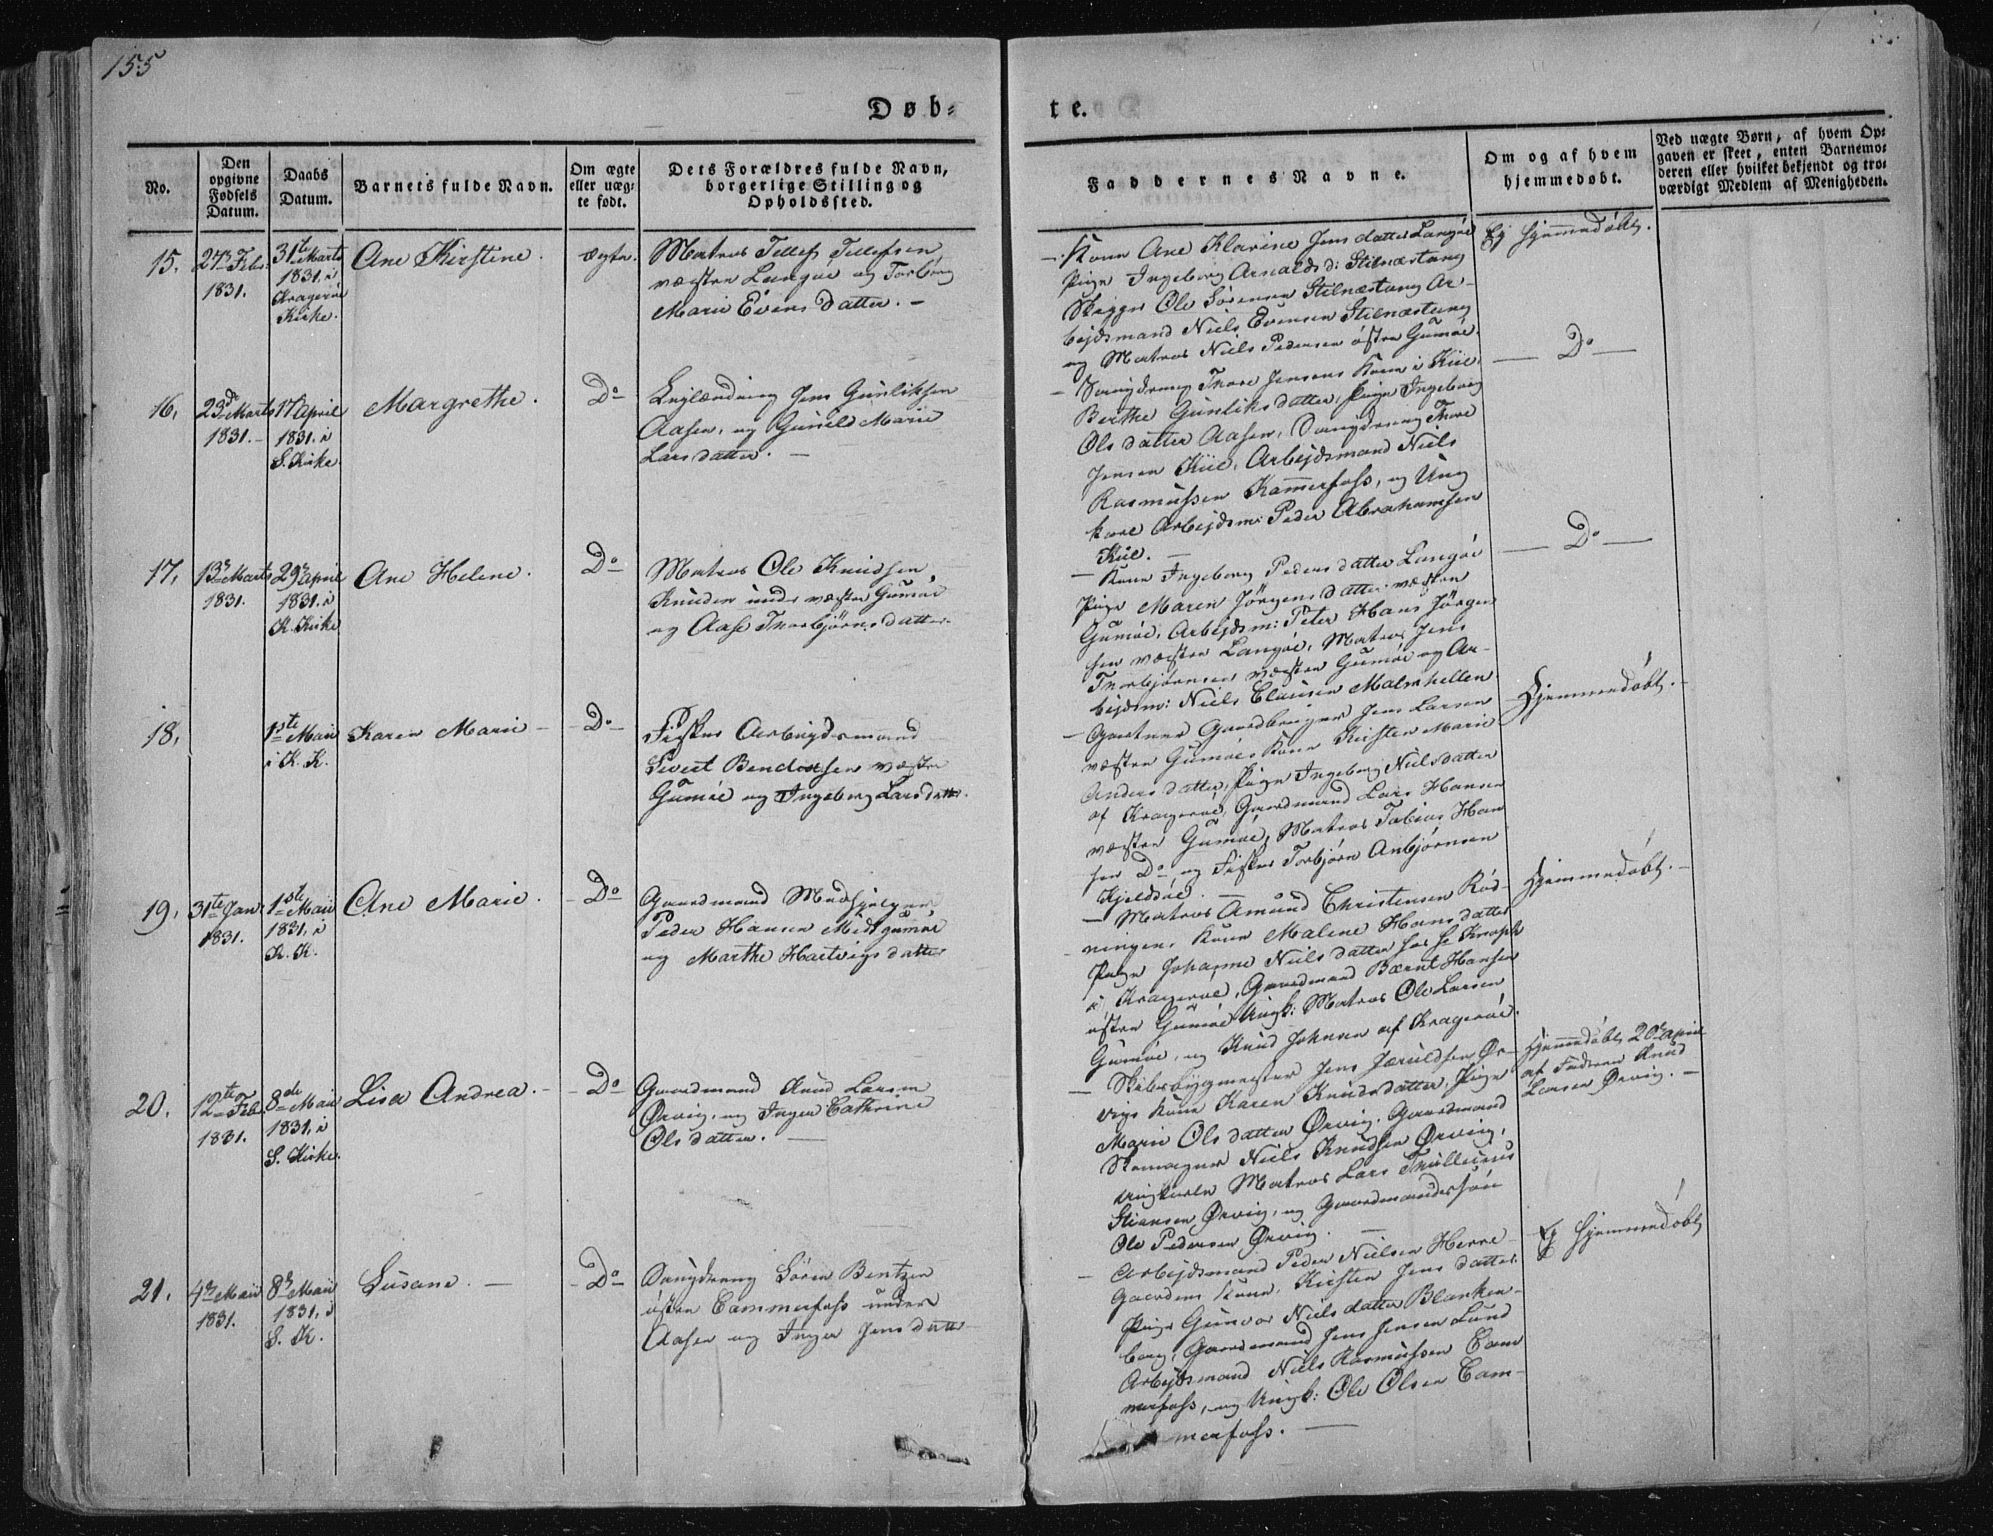 155
Døb=
te.
No.
Den opgivne Fødsels Datum.
Daabs Datum.
Barnets fulde Navn.
Om ægte eller uæg- te født.
Dets Forældres fulde Navn, borgerlige Stilling og Opholdssted.
Faddernes Navne.
Om og af hvem hjemmedøbt.
Ved uægte Børn, af hvem Op- gaven er skeet, enten Barnemo- deren eller hvilket bekjendt og tro- værdigt Medlem af Menigheden.
15.
27de Febr.
1831.
31te Marts
1831. i
Kragerøe
Kirke.
Ane Kirstine.
ægte.
Matros Tellef Tellefsen
væstre Langøe og Torborg
Marie Evensdatter. –
– Kone Ane Klarine Jensdatter Langøe
Pige Ingeborg Arnaldsd: Stilnæstang
Skipper Ole Sørensen Stilnæstang Ar-
bejdsmand Niels Evensen Stilnæstang
og Matros Niels Pedersen østre Gumøe.
Ej hjemmedøbt.
16.
23de Marts
1831. –
17 april
1831. i
S. Kirke.
Margrethe.
Do
Inglærding Jens Gunliksen
Aasen, og Gunild Marie
Larsdatter. –
– Saugdreng Thore Jensens Kone i Kiil,
Berthe Gunliksdatter, Pige Ingeborg
Olsdatter Aasen, Saugdreng Thore
Jensen Kiil, Arbejdsmand Niels
Rasmussen Kammerfoss, og Ung
karl Arbejdsm: Peder Abrahamsen
Kiil. –
Do
17.
13de Marts
1831.
29de april
1831. i
K. Kirke
Ane Helene.
Do
Matros Ole Knudsen
Knuden under væstre Gumøe
og Aase Thorbjørnsdatter.
– Kone Ingeborg Pedersdatter Langøe
Pige Maren Jørgensdatter vestre
Gumøe, Arbejdsm: Peter Hans Jørgen
sen væstre Langøe, Matros Jens
Thorbjørnsen væstre Gumøe og Ar-
bejdsm: Niels Clausen Malmhellen
Do
18.
1ste Maii
i K. K.
Karen Marie –
Do
Fisker Arbejdsmand
Sivert Bendixsen væstre
Gumøe og Ingeborg Larsdatter.
– Gaardbruger Jens Larsen
væstre Gumøes Kone Kirsten Marie
Andersdatter, Pige Ingeborg Nielsdatter
af Kragerøe, Gaardmand Lars Hansen
væstre Gumøe, Matros Tobias Han
sen Do og Fisker Torbjørn Anbjørnsen
Kjelsøe. –
Hjemmedøbt. –
19.
31te Jan:
1831.
1ste Maii
1831, i
K. K.
Ane Marie.
Do
Gaardmand Medhjelper
Peder Hansen Midtgumøe
og Marthe Hartvigsdatter
– Matros Amund Christensen Rød-
ningen, Kone Malene Hansdatter
Pige Johanne Nielsdatter hos Hr Knoph
i Kragerøe, Gaardmand Bærnt Hansen
østre Gumøe Ungk: Matros Ole Larsen
Gumøe, og Knud Johnsen af Kragerøe.
Hjemmedøbt. –
20.
12te Feb.
1831.
8de Maii
1831, i
S. Kirke.
Lisa Andrea. –
Do
Gaardmand Knud Larsen
Ørvig, og Inger Cathrine
Olsdatter. –
– Skibsbygmester Jens Jæruldsen Ør-
vigs Kone Karen Knudsdatter, Pige
Marie Olsdatter Ørvig, Gaardmand
Skomager Niels Knudsen Ørvig,
Ungkarle Matros Lars Thullinus
Stiansen Ørvig, og Gaardmandssøn
Ole Pedersen Ørvig. –
Hjemmedøbt 20de april
af Faderen Knud
Larsen Ørvig. –
21.
4de Maii
1831.
8de Maii
1831, i
S. K.
Susane. –
Do
Saugdreng Søren Bentzen
østre Cammerfoss under
Aasen og Inger Jensdatter
– Arbejdsmand Peder Nielsen Herre-
gaardens Kone, Kirsten Jensdatter
Pige Gunvor Nielsdatter Blanken-
borg, Gaardmand Jens Jensen Lund
Arbejdsmand Niels Rasmussen Cam
merfoss, og Ungk: Ole Olsen Cam-
merfoss. –
Ej hjemmedøbt